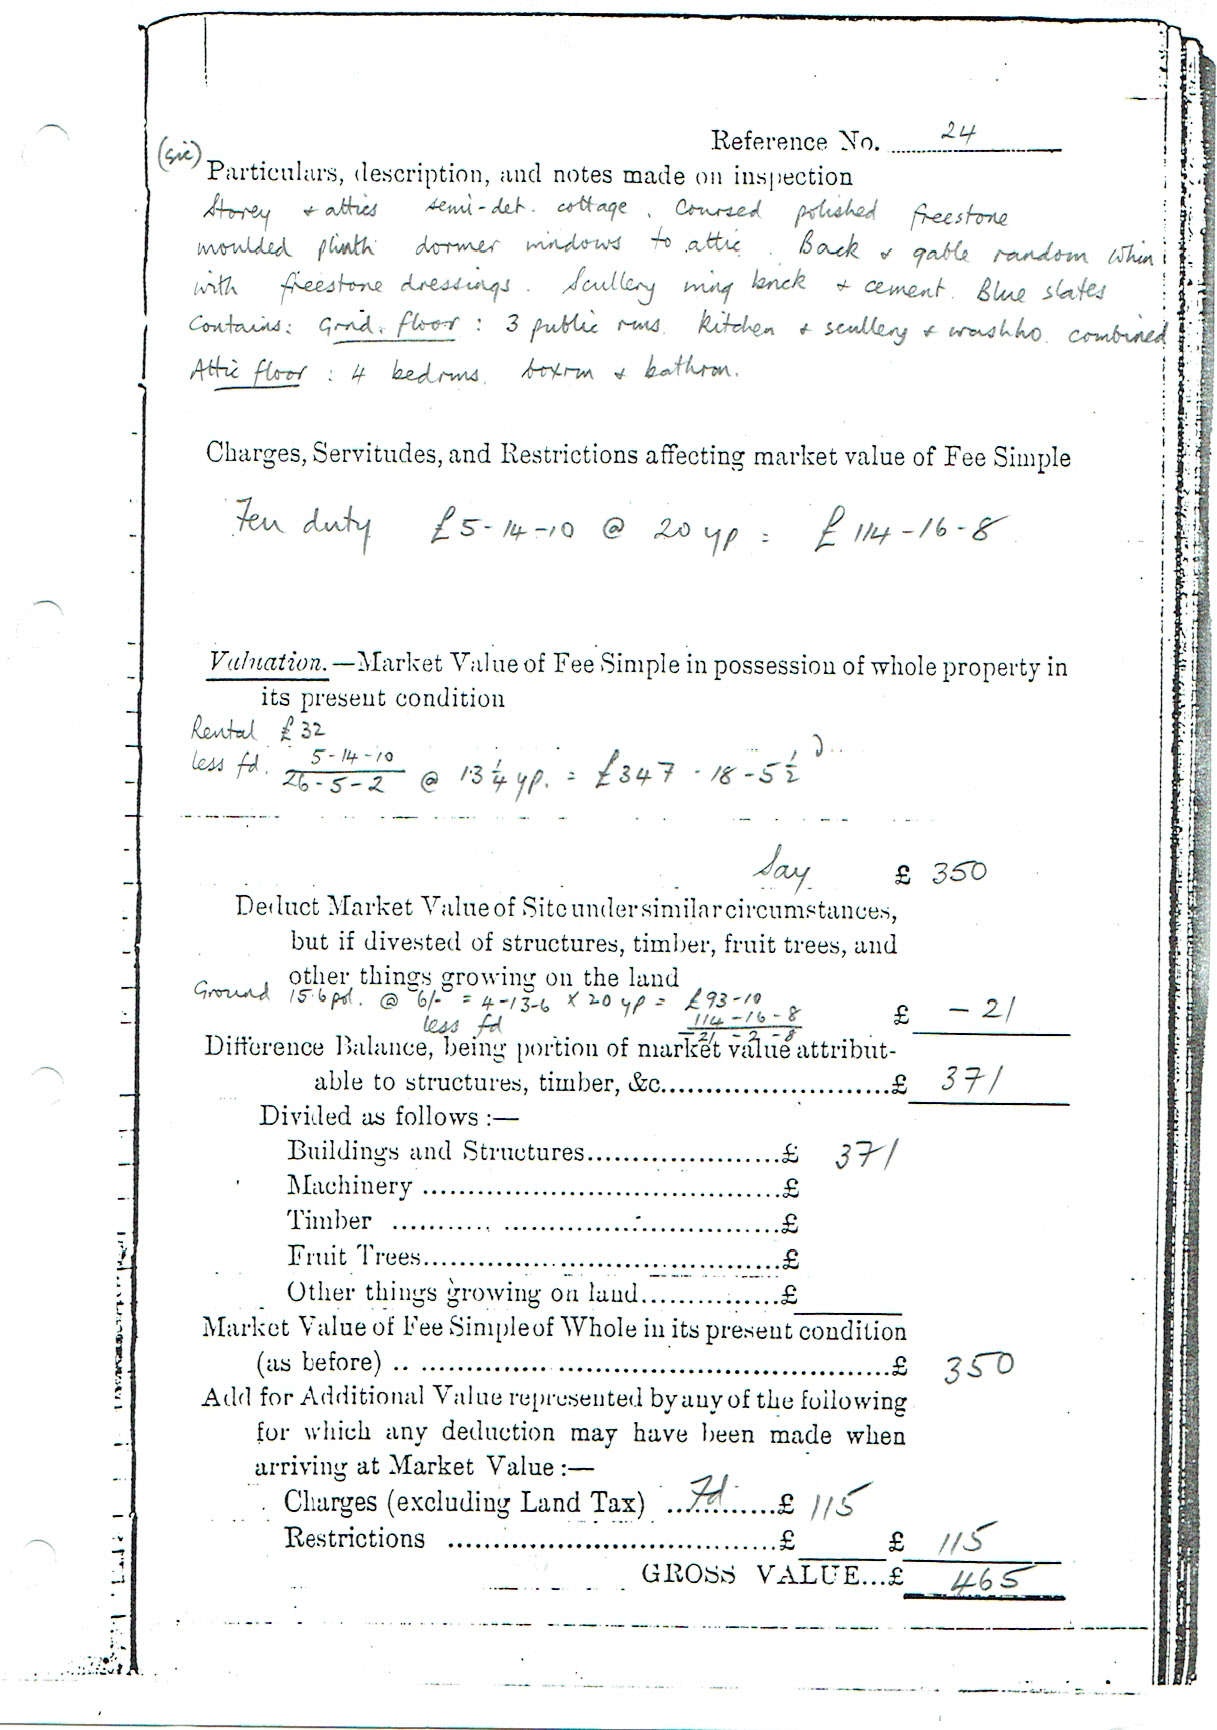 Reference No. 24
(sic)
Particulars, description, and notes made on inspection
Storey & attics semi-det. cottage. Coursed polished freestone
moulded plinth dormer windows to attic. Back & gable random whin
with freestone dressings. Scullery wing brick & cement. Blue slates
Contains: Grnd. floor: 3 public rms. kitchen & scullery & washho. combined
Attic floor: 4 bedrms. boxrm & bathrm.
Charges, Servitudes, and Restrictions affecting market value of Fee Simple
Feu duty £5-14-10 @ 20 yp = £114-16-8
Valuation.—Market Value of Fee Simple in possession of whole property in
its present condition
Rental £32
less fd. 5-14-10
26-5-2 @ 13 1/4 yp. = £347-18-5 1/2
Say £ 350
Deduct Market Value of Site under similar circumstances,
but if divested of structures, timber, fruit trees, and
other things growing on the land
Ground 15.6 pol. @ 6/- = 4-13-6 x 20 yp = £93-10
less fd 114-16-8
-21-2-8
£ -21
Difference Balance, being portion of market value attribut-
able to structures, timber, &c........................£ 371
Divided as follows:—
Buildings and Structures.....................£ 371
Machinery .......................................£
Timber ...........................................£
Fruit Trees.......................................£
Other things growing on land...............£
Market Value of Fee Simple of Whole in its present condition
(as before) .....................................................£ 350
Add for Additional Value represented by any of the following
for which any deduction may have been made when
arriving at Market Value:—
Charges (excluding Land Tax) ..fd........£ 115
Restrictions ....................................£ £ 115
GROSS VALUE...£ 465